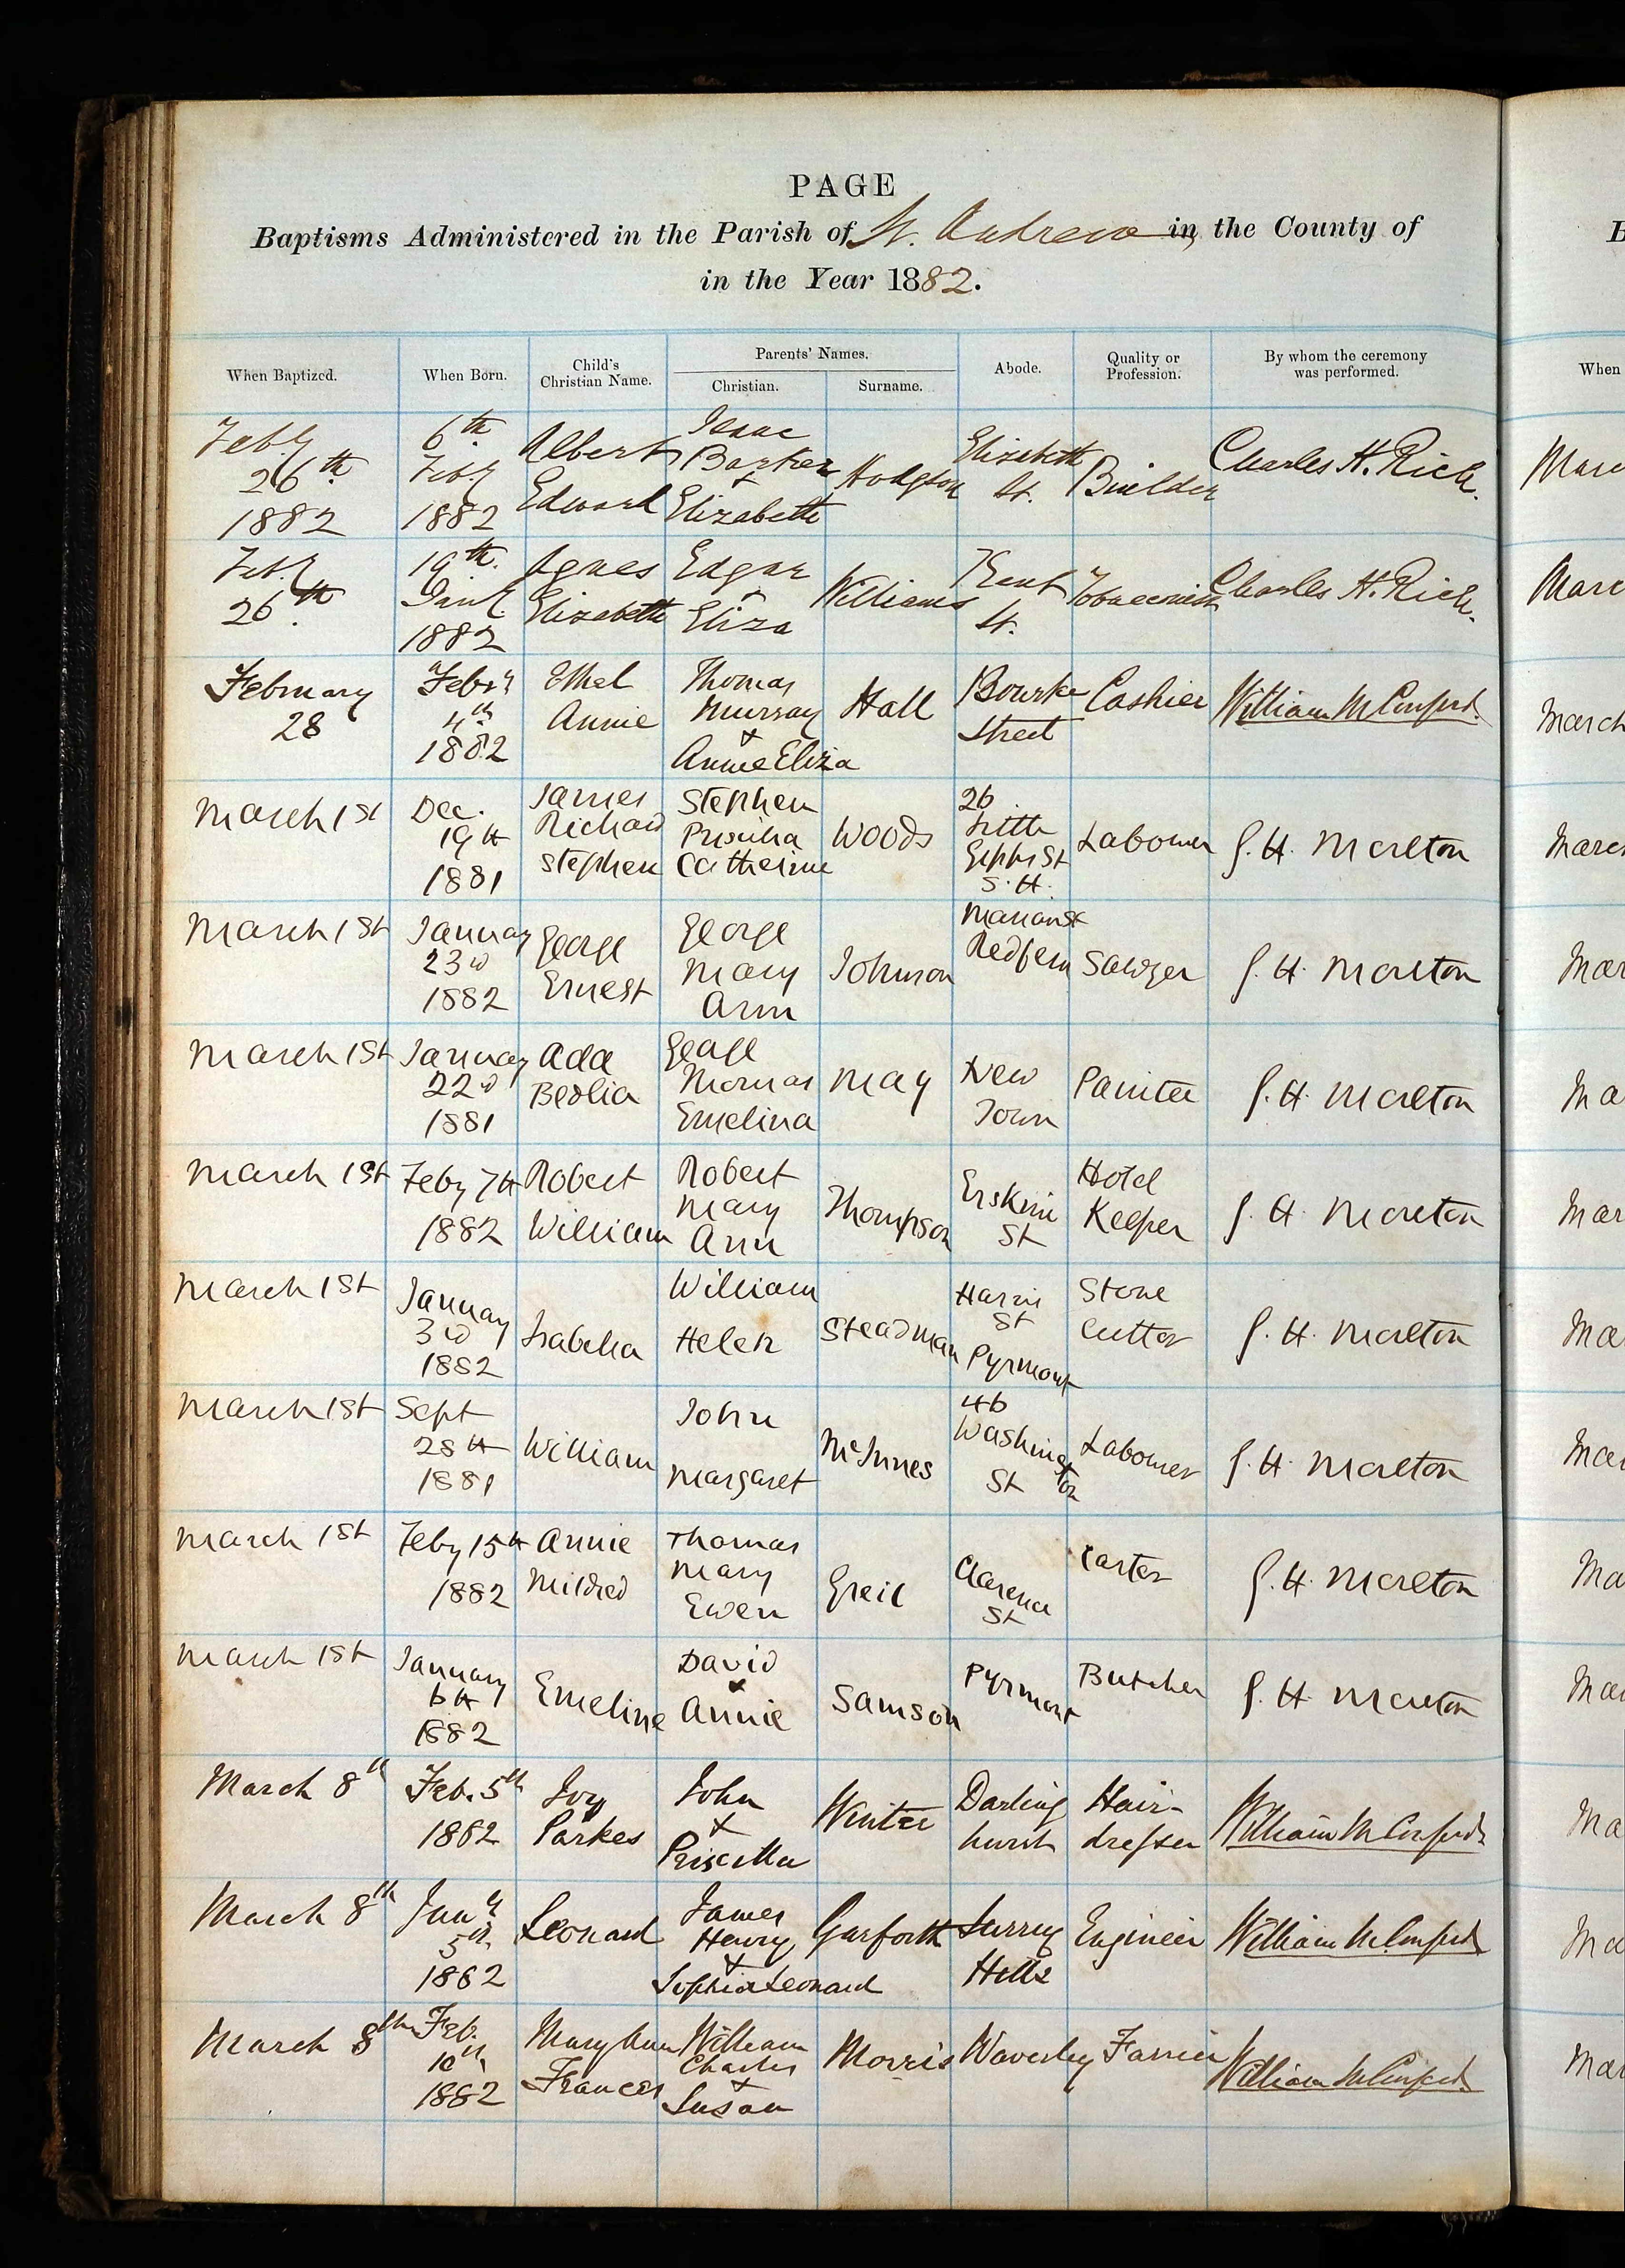 PAGE
Baptisms Administered in the Parish of St. Andrews in the County of
in the Year 1882.
When Baptized. When Born. Child's Christian Name. Parents' Names. Christian. Surname. Abode. Quality or Profession. By whom the ceremony was performed.
Feby 26th 1882 6th Feby 1882 Albert Edward Isaac Barker + Elizabeth Hodgson Elizabeth St. Builder Charles H. Rich.
Feby 26th 19th Jany 1882 Agnes Elizabeth Edgar + Eliza Williams Kent St. Tobacconist Charles H. Rich.
February 28 Feby 4th 1882 Ethel Annie Thomas Murray + Annie Eliza Hall Bourke Street Cashier William M
March 1st Dec. 19th 1881 James Richard Stephen Stephen Catherine Woods 26 Little St S. H. Labourer J. H. Morlton
March 1st January 23rd 1882 George Ernest George Mary Ann Johnson Marian St Redfern Sawyer J. H. Morlton
March 1st January 22d 1881 Ada George Thomas Emelina May New Town Painter J. H. Morlton
March 1st Feby 7th 1882 Robert William Robert Mary Ann Thompson Erskine St Hotel Keeper J. H. Morlton
March 1st January 3rd 1882 Isabella William Helen Steadman Harris St Pyrmont Stone Cutter J. H. Morlton
March 1st Sept 28th 1881 William John Margaret McInnes 46 Washington St Labourer J. H. Morlton
March 1st Feby 15th 1882 Annie Mildred Thomas Mary Ewen Clarence St Carter J. H. Morlton
March 1st January 6th 1882 Emeline David & Annie Samson Pyrmont Butcher J. H. Morlton
March 8th Feb. 5th 1882 Ivy Parkes John + Priscilla Winter Darling hurst Hair-dresser William M
March 8th Jany 5th 1882 Leonard James Henry + Sophia Leonard Garforth Surrey Hills Engineer William M
March 8th Feb. 10th 1882 Mary Ann Frances William Charles + Susan Morris Waverley Farrier William M
When